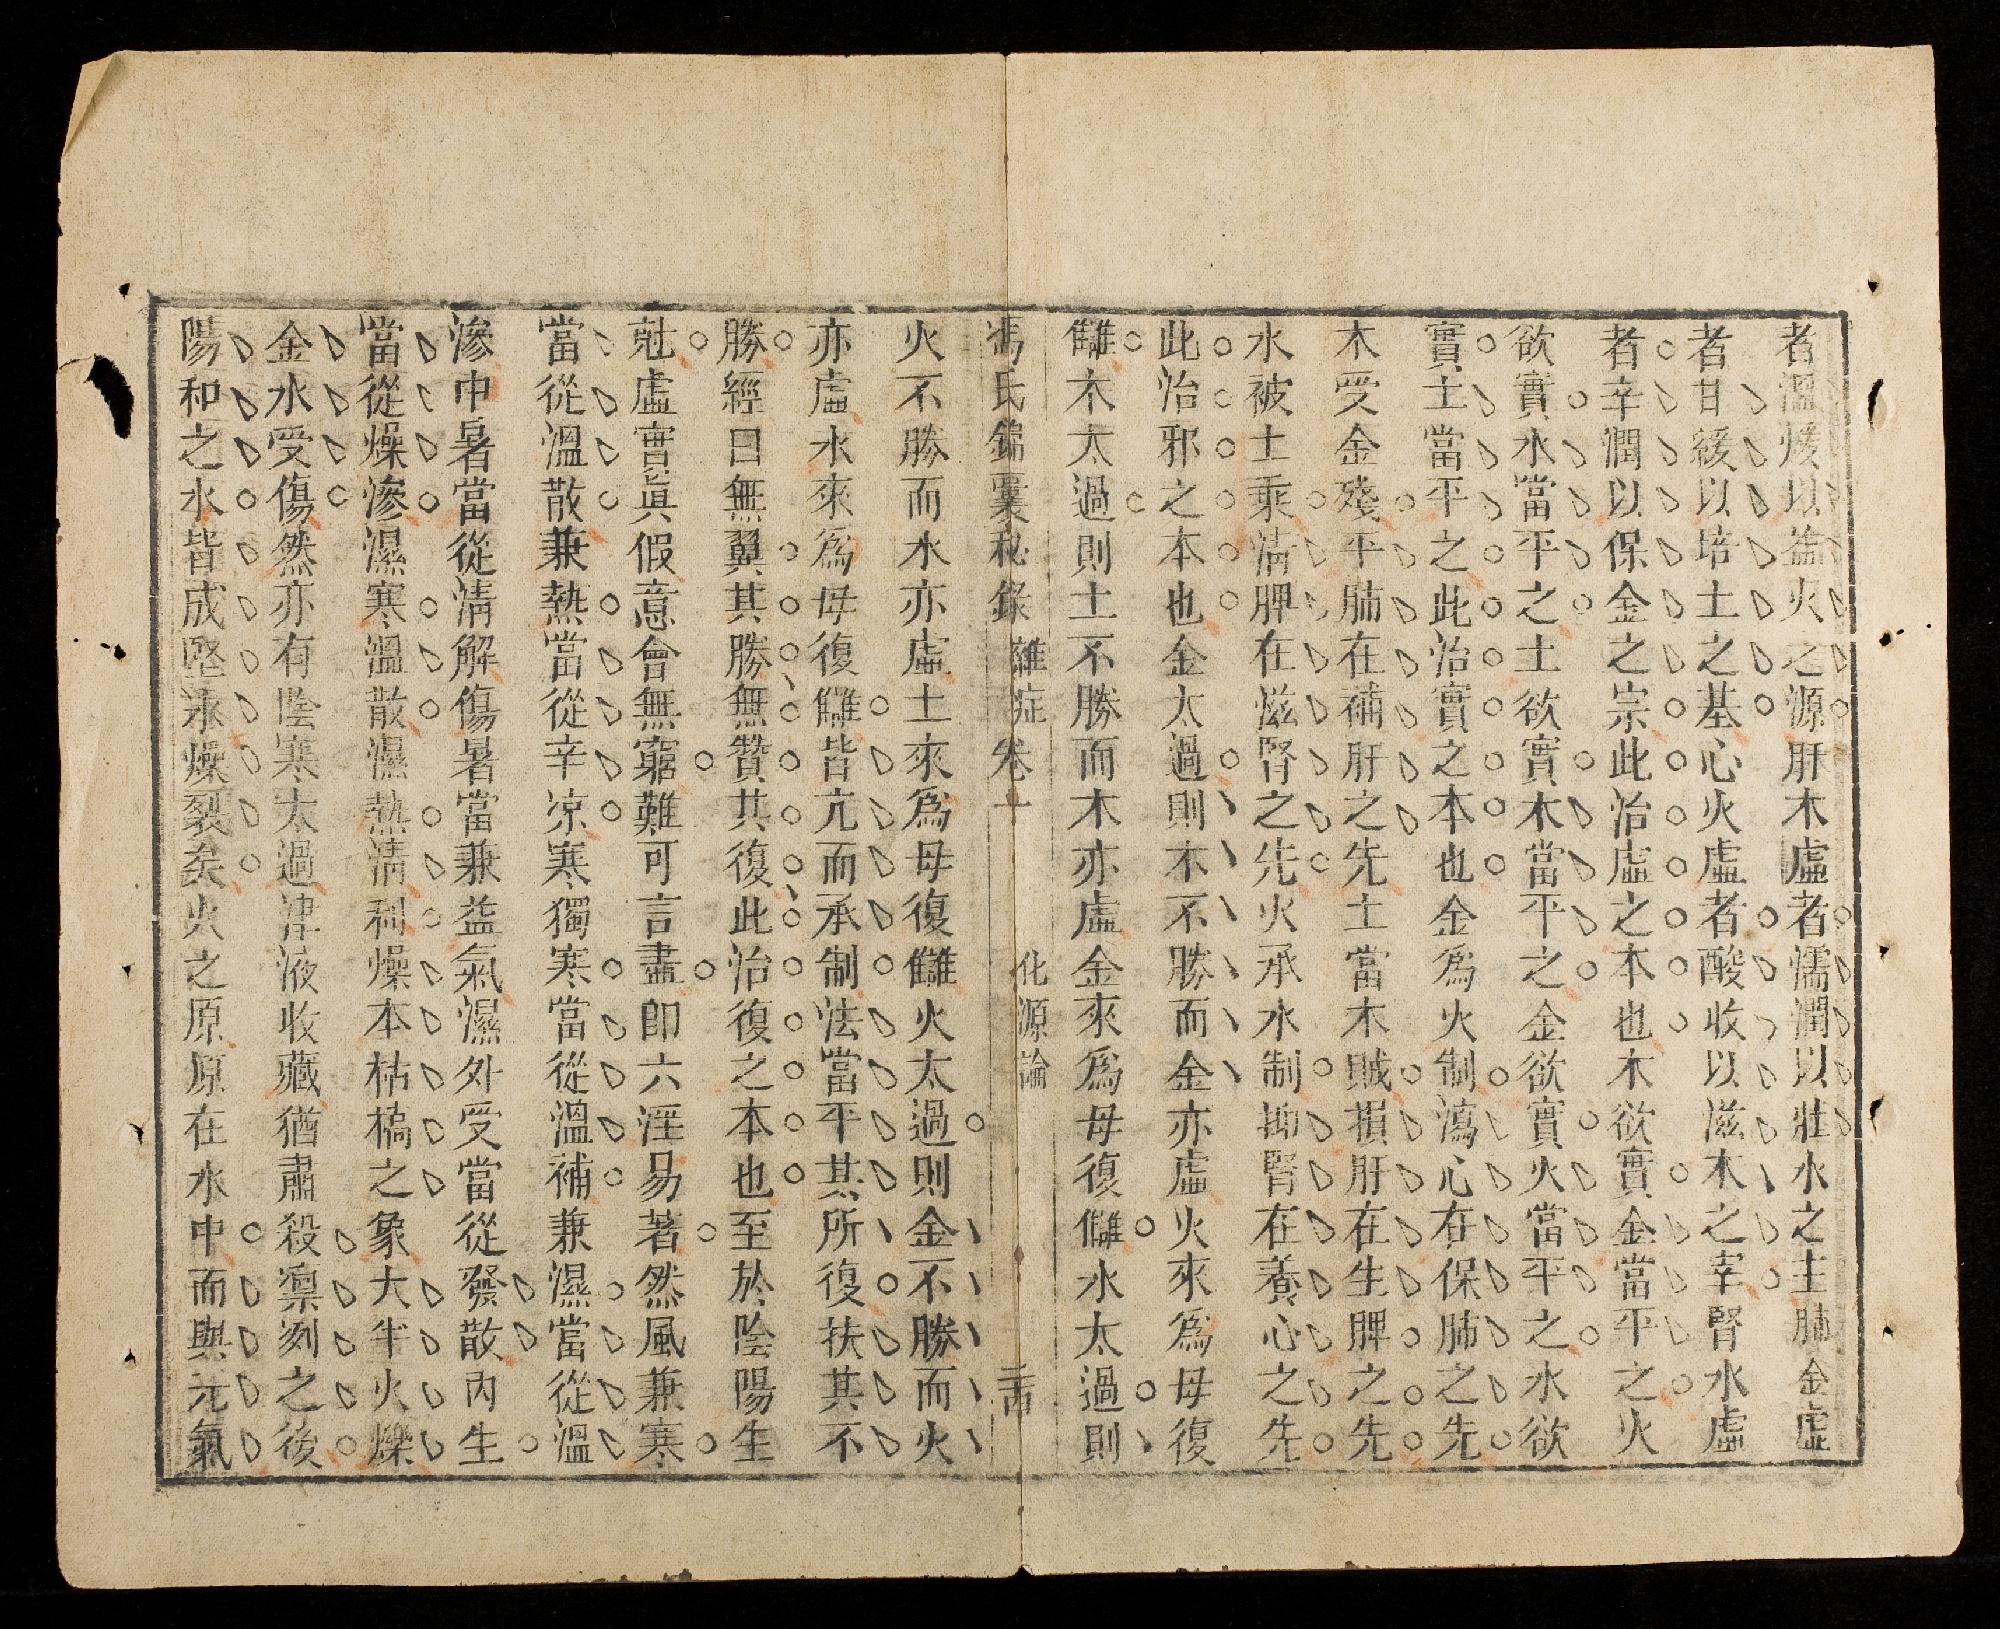 者溫煖以益火之源肝木虛者濡潤以壯水之主肺金虛
者甘緩以培土之基心火虛者酸收以滋木之宰腎水虛
者辛潤以保金之宗此治虛之本也木欲實金當平之火
欲實水當平之土欲實木當平之金欲實火當平之水欲
實土當平之此治實之本也金爲火制瀉心在保肺之先
木受金殘平肺在補肝之先土當木賊損肝在生脾之先
水被土乘清脾在滋腎之先火承水制抑腎在養心之先
此治邪之本也金太過則木不勝而金亦虛火來爲母復
讎木太過則土不勝而木亦虛金來爲母復讎水太過則
馮氏錦囊秘錄 雜症 卷十 化源論 二十四
火不勝而水亦虛土來爲母復讎火太過則金不勝而火
亦虛水來爲母復讎皆亢而承制法當平其所復扶其不
勝經曰無翼其勝無贊其復此治復之本也至於陰陽生
尅虛實眞假意會無窮難可言盡卽六淫易著然風兼寒
當從溫散兼熱當從辛凉寒獨寒當從溫補兼濕當從溫
滲中暑當從淸解傷暑當兼益氣濕外受當從發散內生
當從燥滲濕寒溫散濕熱淸利燥本枯槁之象大半火爍
金水受傷然亦有陰寒太過津液收藏猶肅殺凛冽之後
陽和之水皆成堅氷燥裂矣火之原原在水中而與元氣